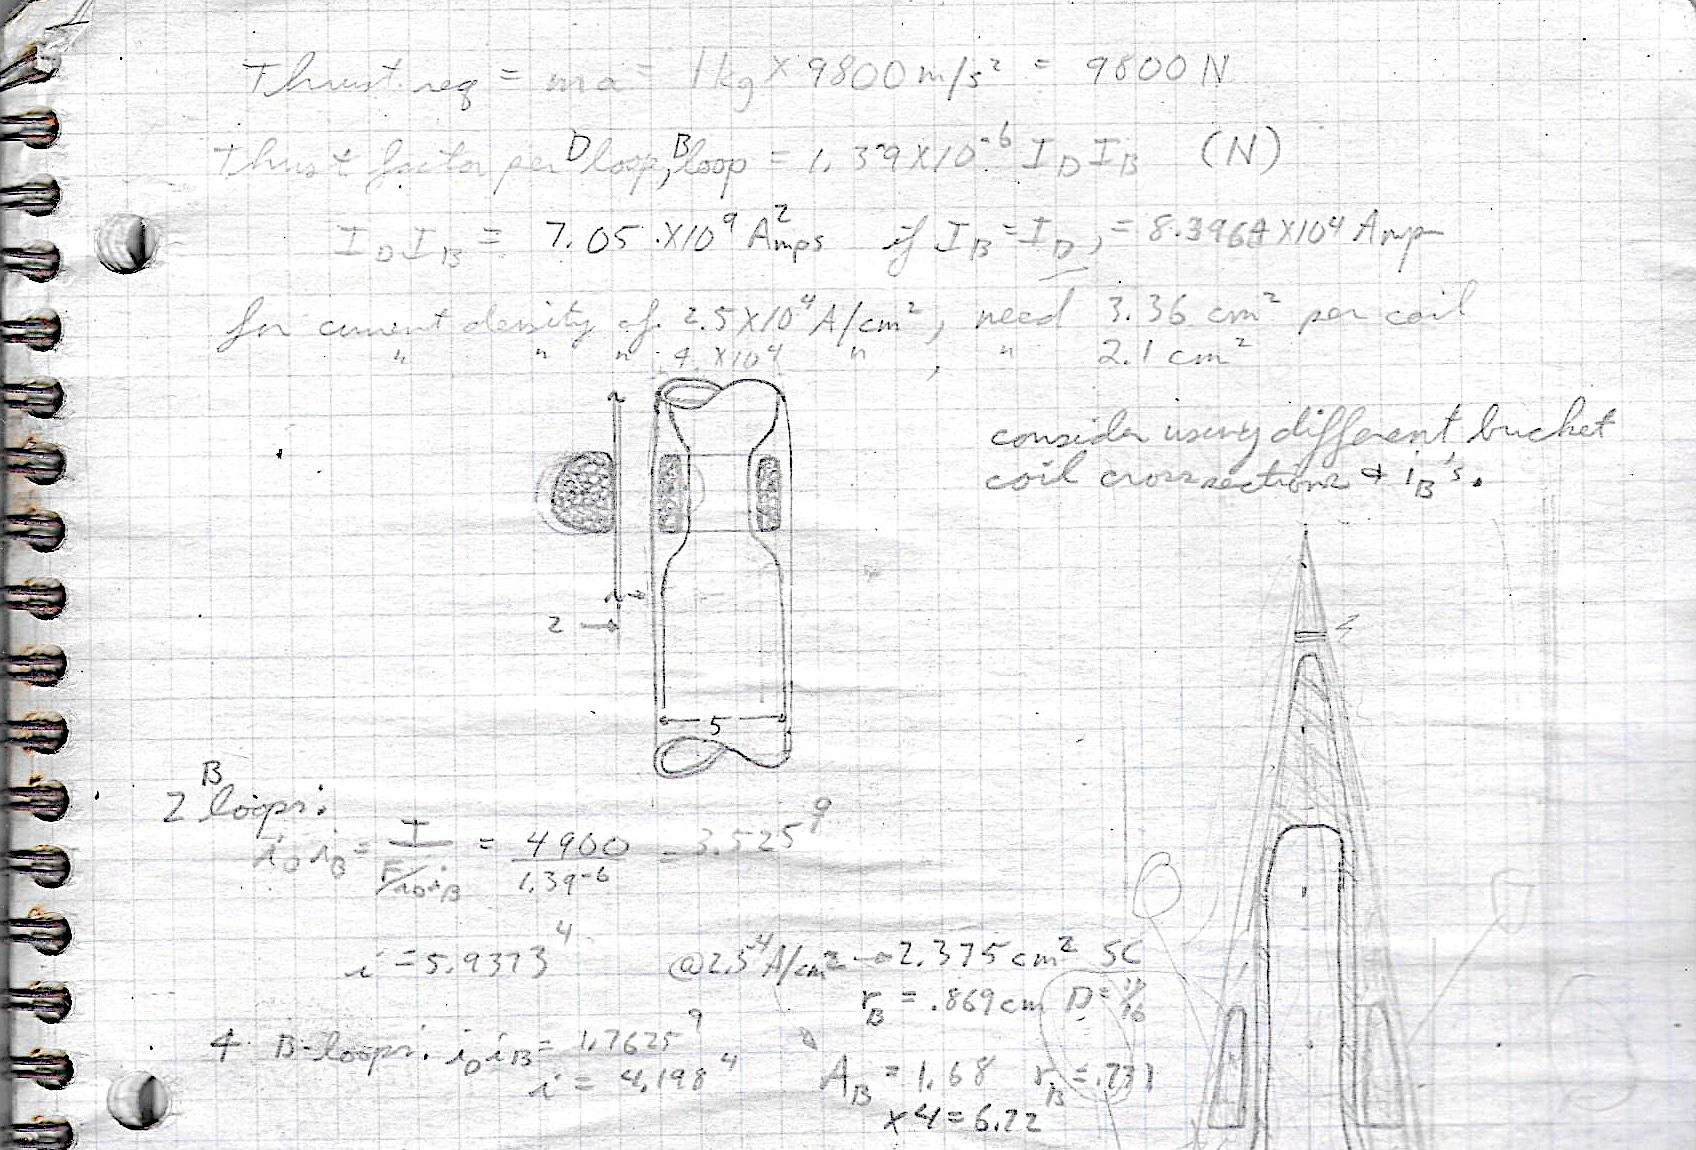 Thrust req = ma = 1kg × 9800 m/s² = 9800 N
Thrust factor per D loop, B loop = 1.39 × 10⁻⁶ I_D I_B (N)
I_D I_B = 7.05 × 10⁹ Amps² if I_B = I_D, = 8.3964 × 10⁴ Amp
for current density of 2.5 × 10⁴ A/cm², need 3.36 cm² per coil
" " " 4. × 10⁴ " , " 2.1 cm²
consider using different bucket
coil crossections & i_B's.
2
5
2 B loops:
i_D i_B = I / F/i_D i_B = 4900 / 1.39⁻⁶ = 3.525⁹
i = 5.9373⁴ @ 2.5⁴ A/cm² → 2.375 cm² SC
r_B = .869 cm D = 11/16
4 B-loops: i_D i_B = 1.7625⁹
i = 4.198⁴ A_B = 1.68 r_B = .731
× 4 = 6.72